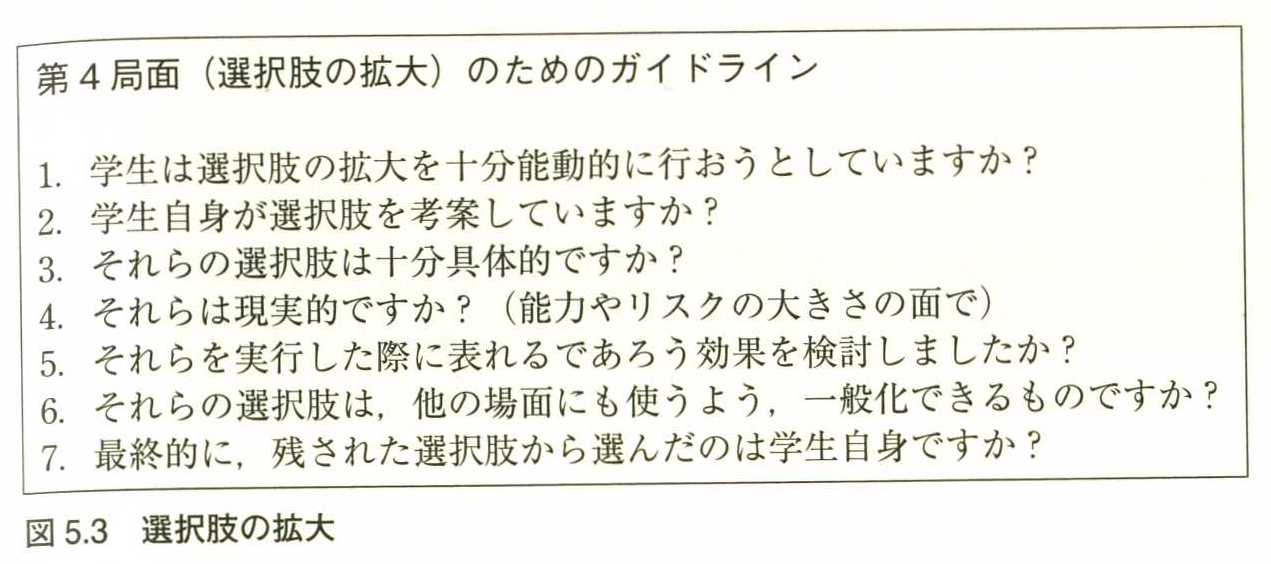 第4局面（選択肢の拡大）のためのガイドライン
1. 学生は選択肢の拡大を十分能動的に行おうとしていますか？
2. 学生自身が選択肢を考案していますか？
3. それらの選択肢は十分具体的ですか？
4. それらは現実的ですか？（能力やリスクの大きさの面で）
5. それらを実行した際に表れるであろう効果を検討しましたか？
6. それらの選択肢は，他の場面にも使うよう，一般化できるものですか？
7. 最終的に，残された選択肢から選んだのは学生自身ですか？
図5.3　選択肢の拡大